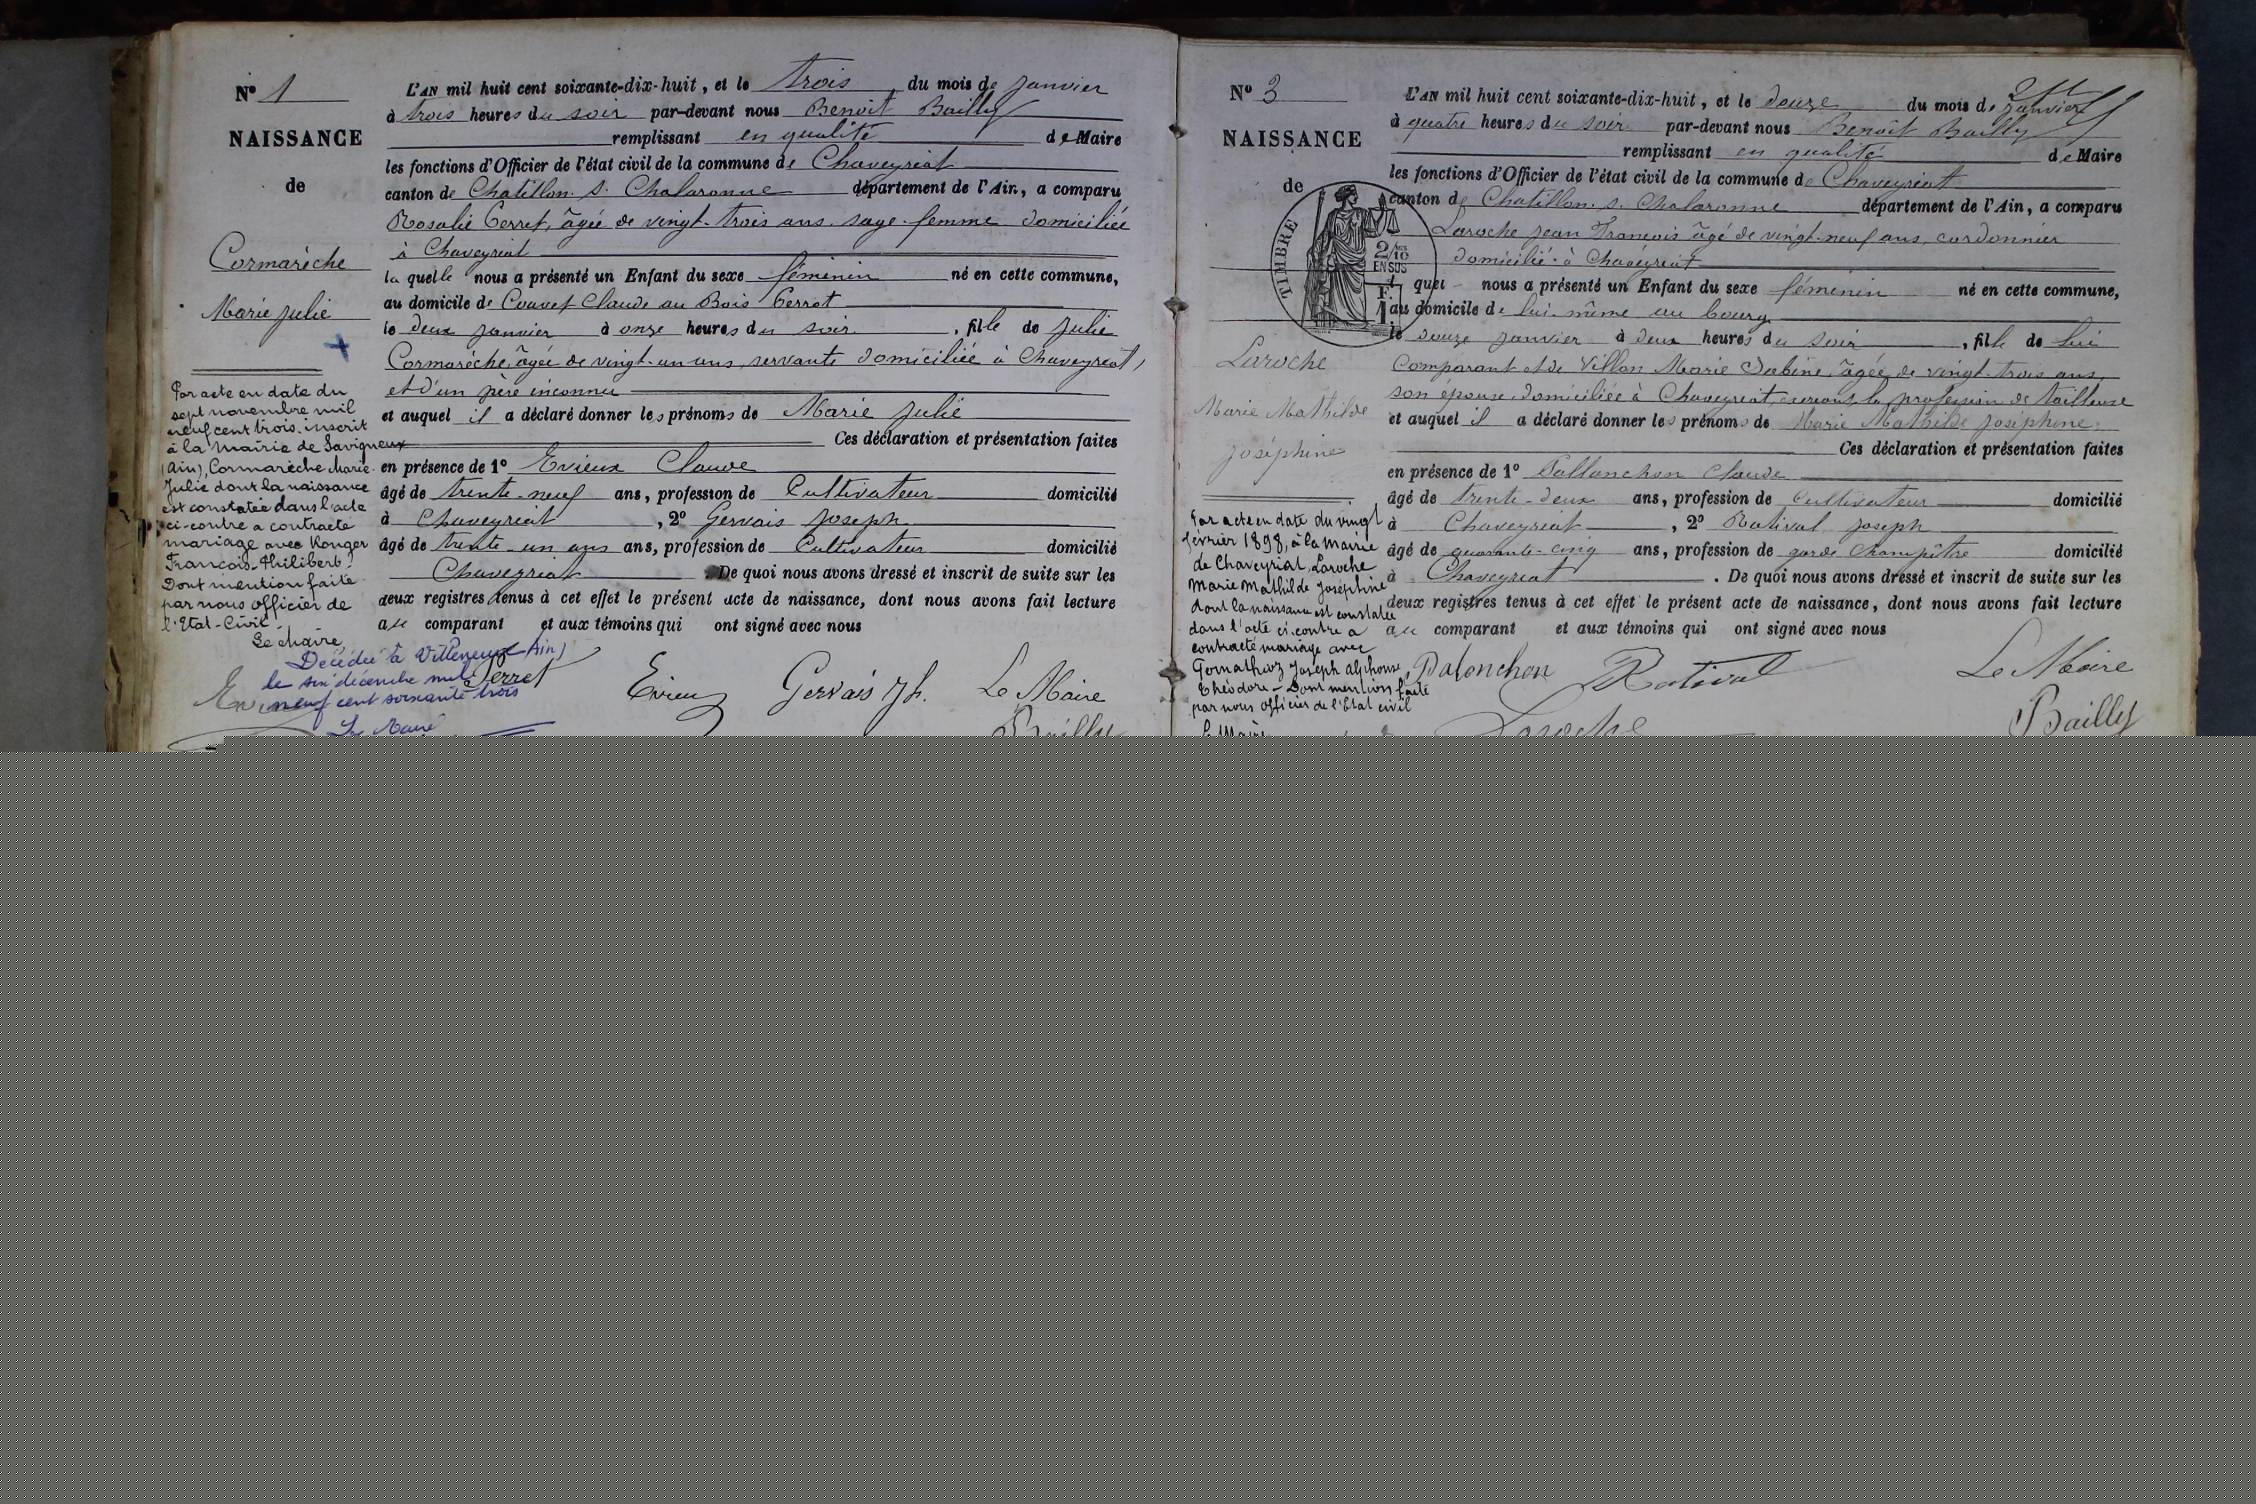 N° 1
NAISSANCE
de
Cormarèche
Marie Julie
Par acte en date du
sept novembre mil
neuf cent trois, inscrit
à la Mairie de Savigneux
(Ain), Cormarèche Marie
Julie dont la naissance
est constatée dans l'acte
ci-contre a contracté
mariage avec Ronger
François-Philibert.
Dont mention faite
par nous officier de
l'Etat-Civil.
Le Maire
Décédée à Villeneuve (Ain)
le six décembre mil
neuf cent soixante trois
Le Maire
L'AN mil huit cent soixante-dix-huit, et le trois du mois de janvier
à trois heures du soir par-devant nous Benoît Bailly
remplissant en qualité de Maire
les fonctions d'Officier de l'état civil de la commune de Chaveyriat
canton de Chatillon s. Chalaronne département de l'Ain, a comparu
Rosalie Perret, âgée de vingt-trois ans, sage-femme domiciliée
à Chaveyriat
laquelle nous a présenté un Enfant du sexe féminin né en cette commune,
au domicile de Couvet Claude au Bois Perrot
le deux janvier à onze heures du soir, fille de Julie
Cormarèche, âgée de vingt-un ans, servante domiciliée à Chaveyriat,
et d'un père inconnu
et auquel il a déclaré donner les prénoms de Marie Julie
Ces déclaration et présentation faites
en présence de 1° Evieux Claude
âgé de trente-neuf ans, profession de Cultivateur domicilié
à Chaveyriat, 2° Gervais Joseph
âgé de trente-un ans ans, profession de Cultivateur domicilié
Chaveyriat De quoi nous avons dressé et inscrit de suite sur les
deux registres tenus à cet effet le présent acte de naissance, dont nous avons fait lecture
au comparant et aux témoins qui ont signé avec nous
Perret Evieux Gervais Jh. Le Maire
Bailly
N° 3
NAISSANCE
de
TIMBRE
2/10
EN SUS
Laroche
Marie Mathilde
Joséphine
Par acte en date du vingt
février 1898, à la Mairie
de Chaveyriat, Laroche
Marie Mathilde Joséphine
dont la naissance est constatée
dans l'acte ci-contre a
contracté mariage avec
Joseph Alphonse,
Théodore - Dont mention faite
par nous officier de l'Etat civil
Le Maire
L'AN mil huit cent soixante-dix-huit, et le douze du mois de janvier
à quatre heures du soir par-devant nous Benoît Bailly
remplissant en qualité de Maire
les fonctions d'Officier de l'état civil de la commune de Chaveyriat
canton de Chatillon s. Chalaronne département de l'Ain, a comparu
Laroche Jean François âgé de vingt-neuf ans, cordonnier
domicilié à Chaveyriat
quel nous a présenté un Enfant du sexe féminin né en cette commune,
au domicile de lui-même au bourg
le douze janvier à deux heures du soir, fille de lui
Comparant et de Villon Marie Sabine, âgée de vingt-trois ans,
son épouse domiciliée à Chaveyriat, exerçant la profession de tailleuse
et auquel il a déclaré donner les prénoms de Marie Mathilde Joséphine
Ces déclaration et présentation faites
en présence de 1° Pallanchon Claude
âgé de trente-deux ans, profession de cultivateur domicilié
à Chaveyriat, 2° Rativat Joseph
âgé de quarante-cinq ans, profession de garde champêtre domicilié
à Chaveyriat. De quoi nous avons dressé et inscrit de suite sur les
deux registres tenus à cet effet le présent acte de naissance, dont nous avons fait lecture
au comparant et aux témoins qui ont signé avec nous
Palonchon Rativat Le Maire
Laroche Bailly